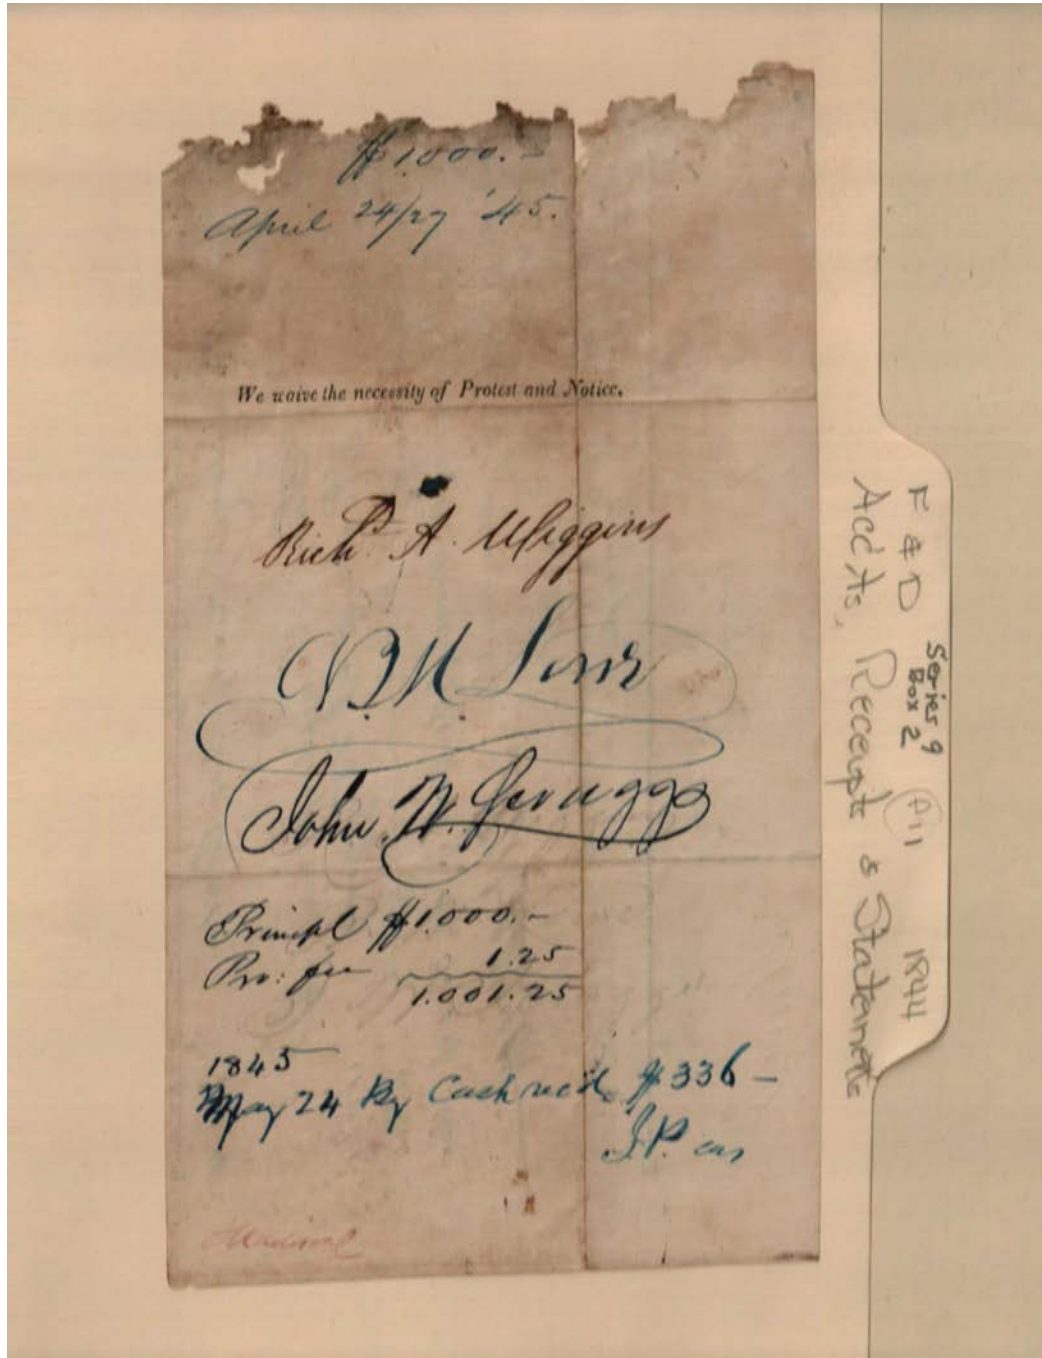 $1.000.-
April 24/27 '45.
We waive the necessity of Protest and Notice.
Richd. A. Wiggins
B.M. Lowe
John W. Scruggs
Principl $1.000.-
Pro: fee 1.25
1.001.25
1845
May 24 By Cash rec'd. $336-
J.P.
F & D Series 9 A11 1844
Box 2
Acc'ts, Receipts & Statements